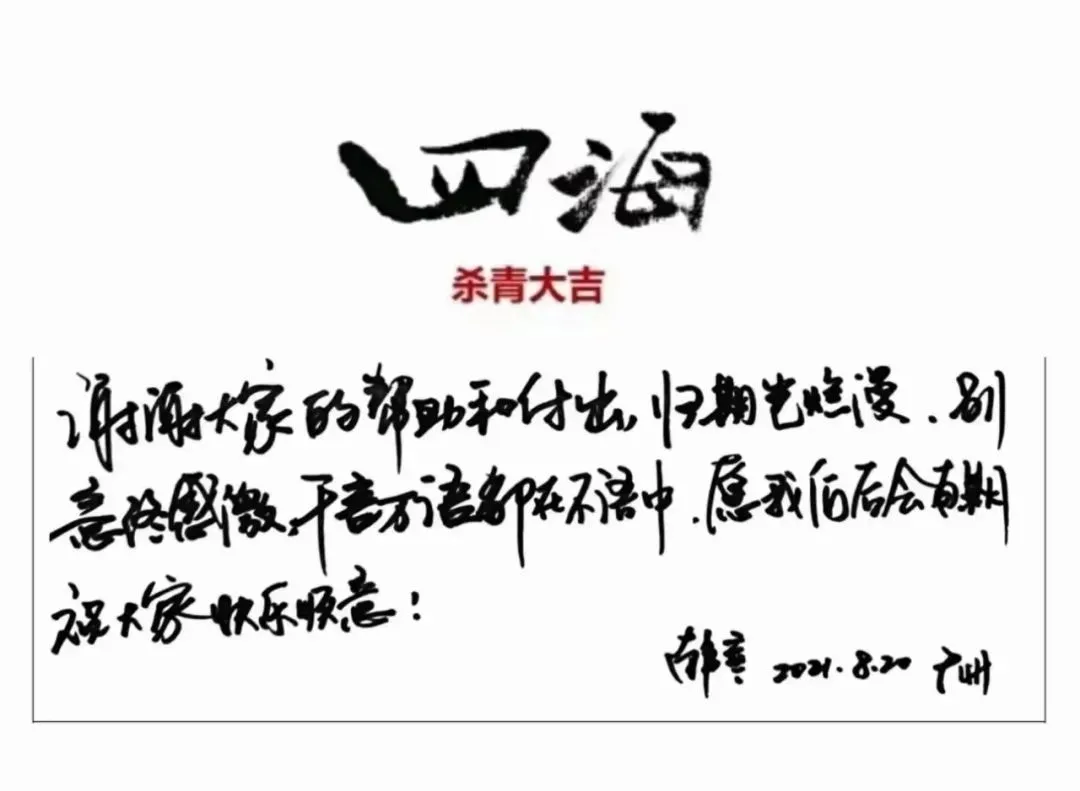 四海
杀青大吉
谢谢大家的帮助和付出,归期光烂漫、别
意终感激,千言万语都在不语中、愿我们后会有期
祝大家快乐顺意!
韩寒 2021.8.20 广州